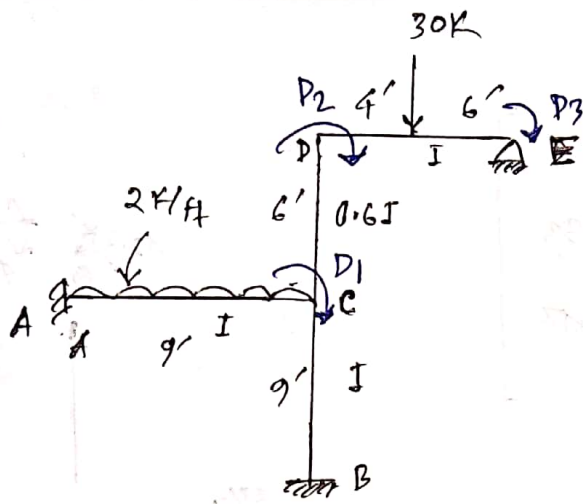 30K
D2 4' 6' D3
D I E
2K/ft 6' 0.6I
D1
A C
A 9' I
9' I
B